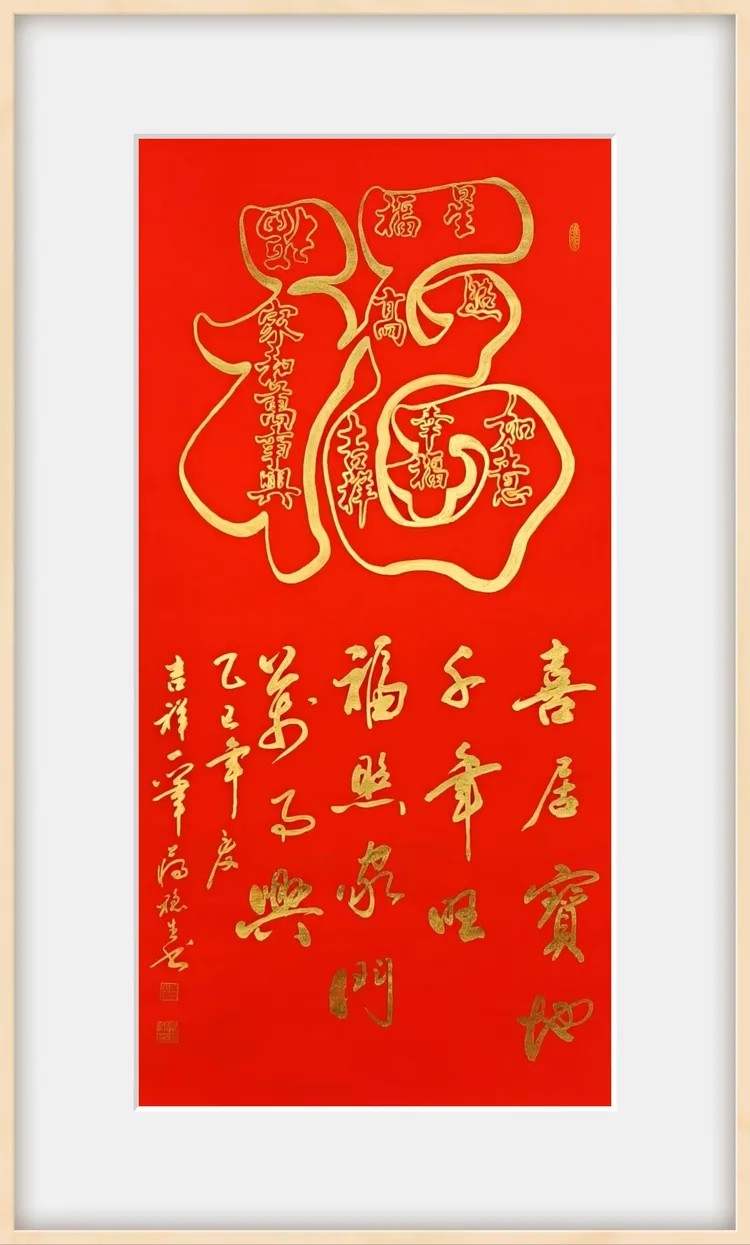 福
星
福
照
高
如意
幸福
吉祥
家和萬事興
喜居寶地
千年旺
福照家門
萬事興
乙巳年夏
吉祥一筆